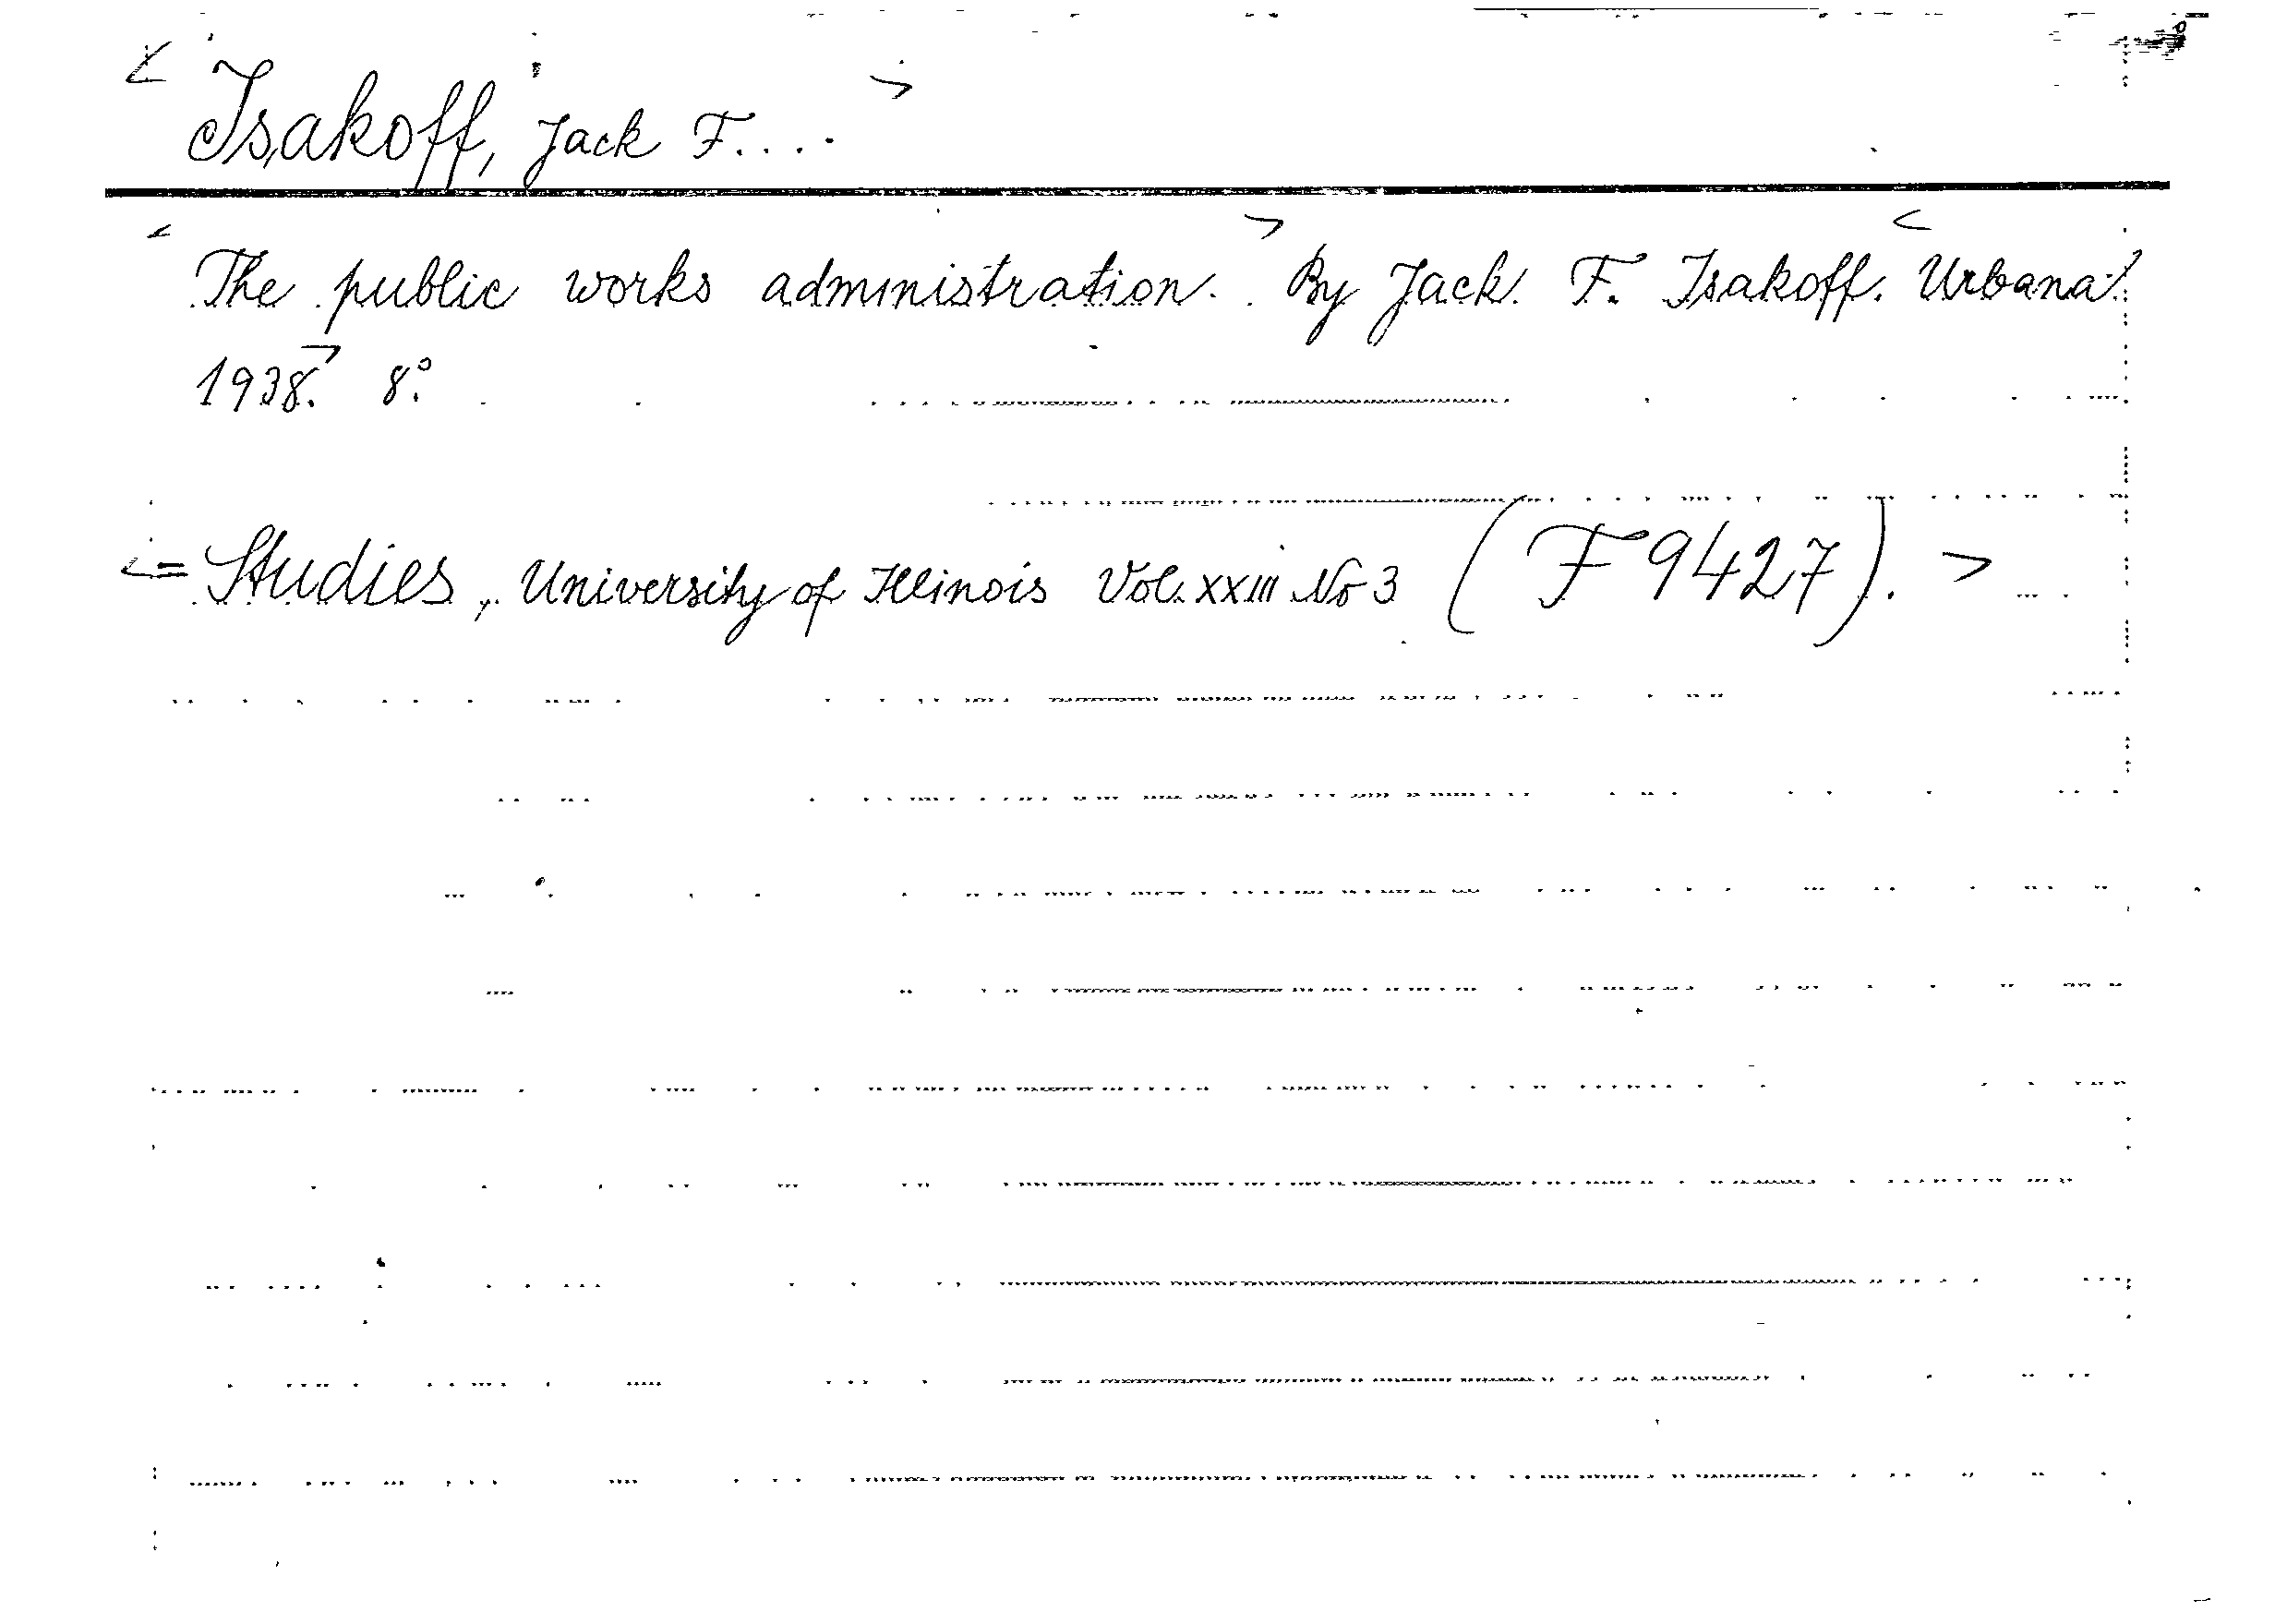 < Isakoff, Jack F.... >
< The public works administration. > By Jack. F. Isakoff. < Urbana
1938. > 8°.
<= Studies, University of Illinois Vol. XXIII No 3 (F 9427). >